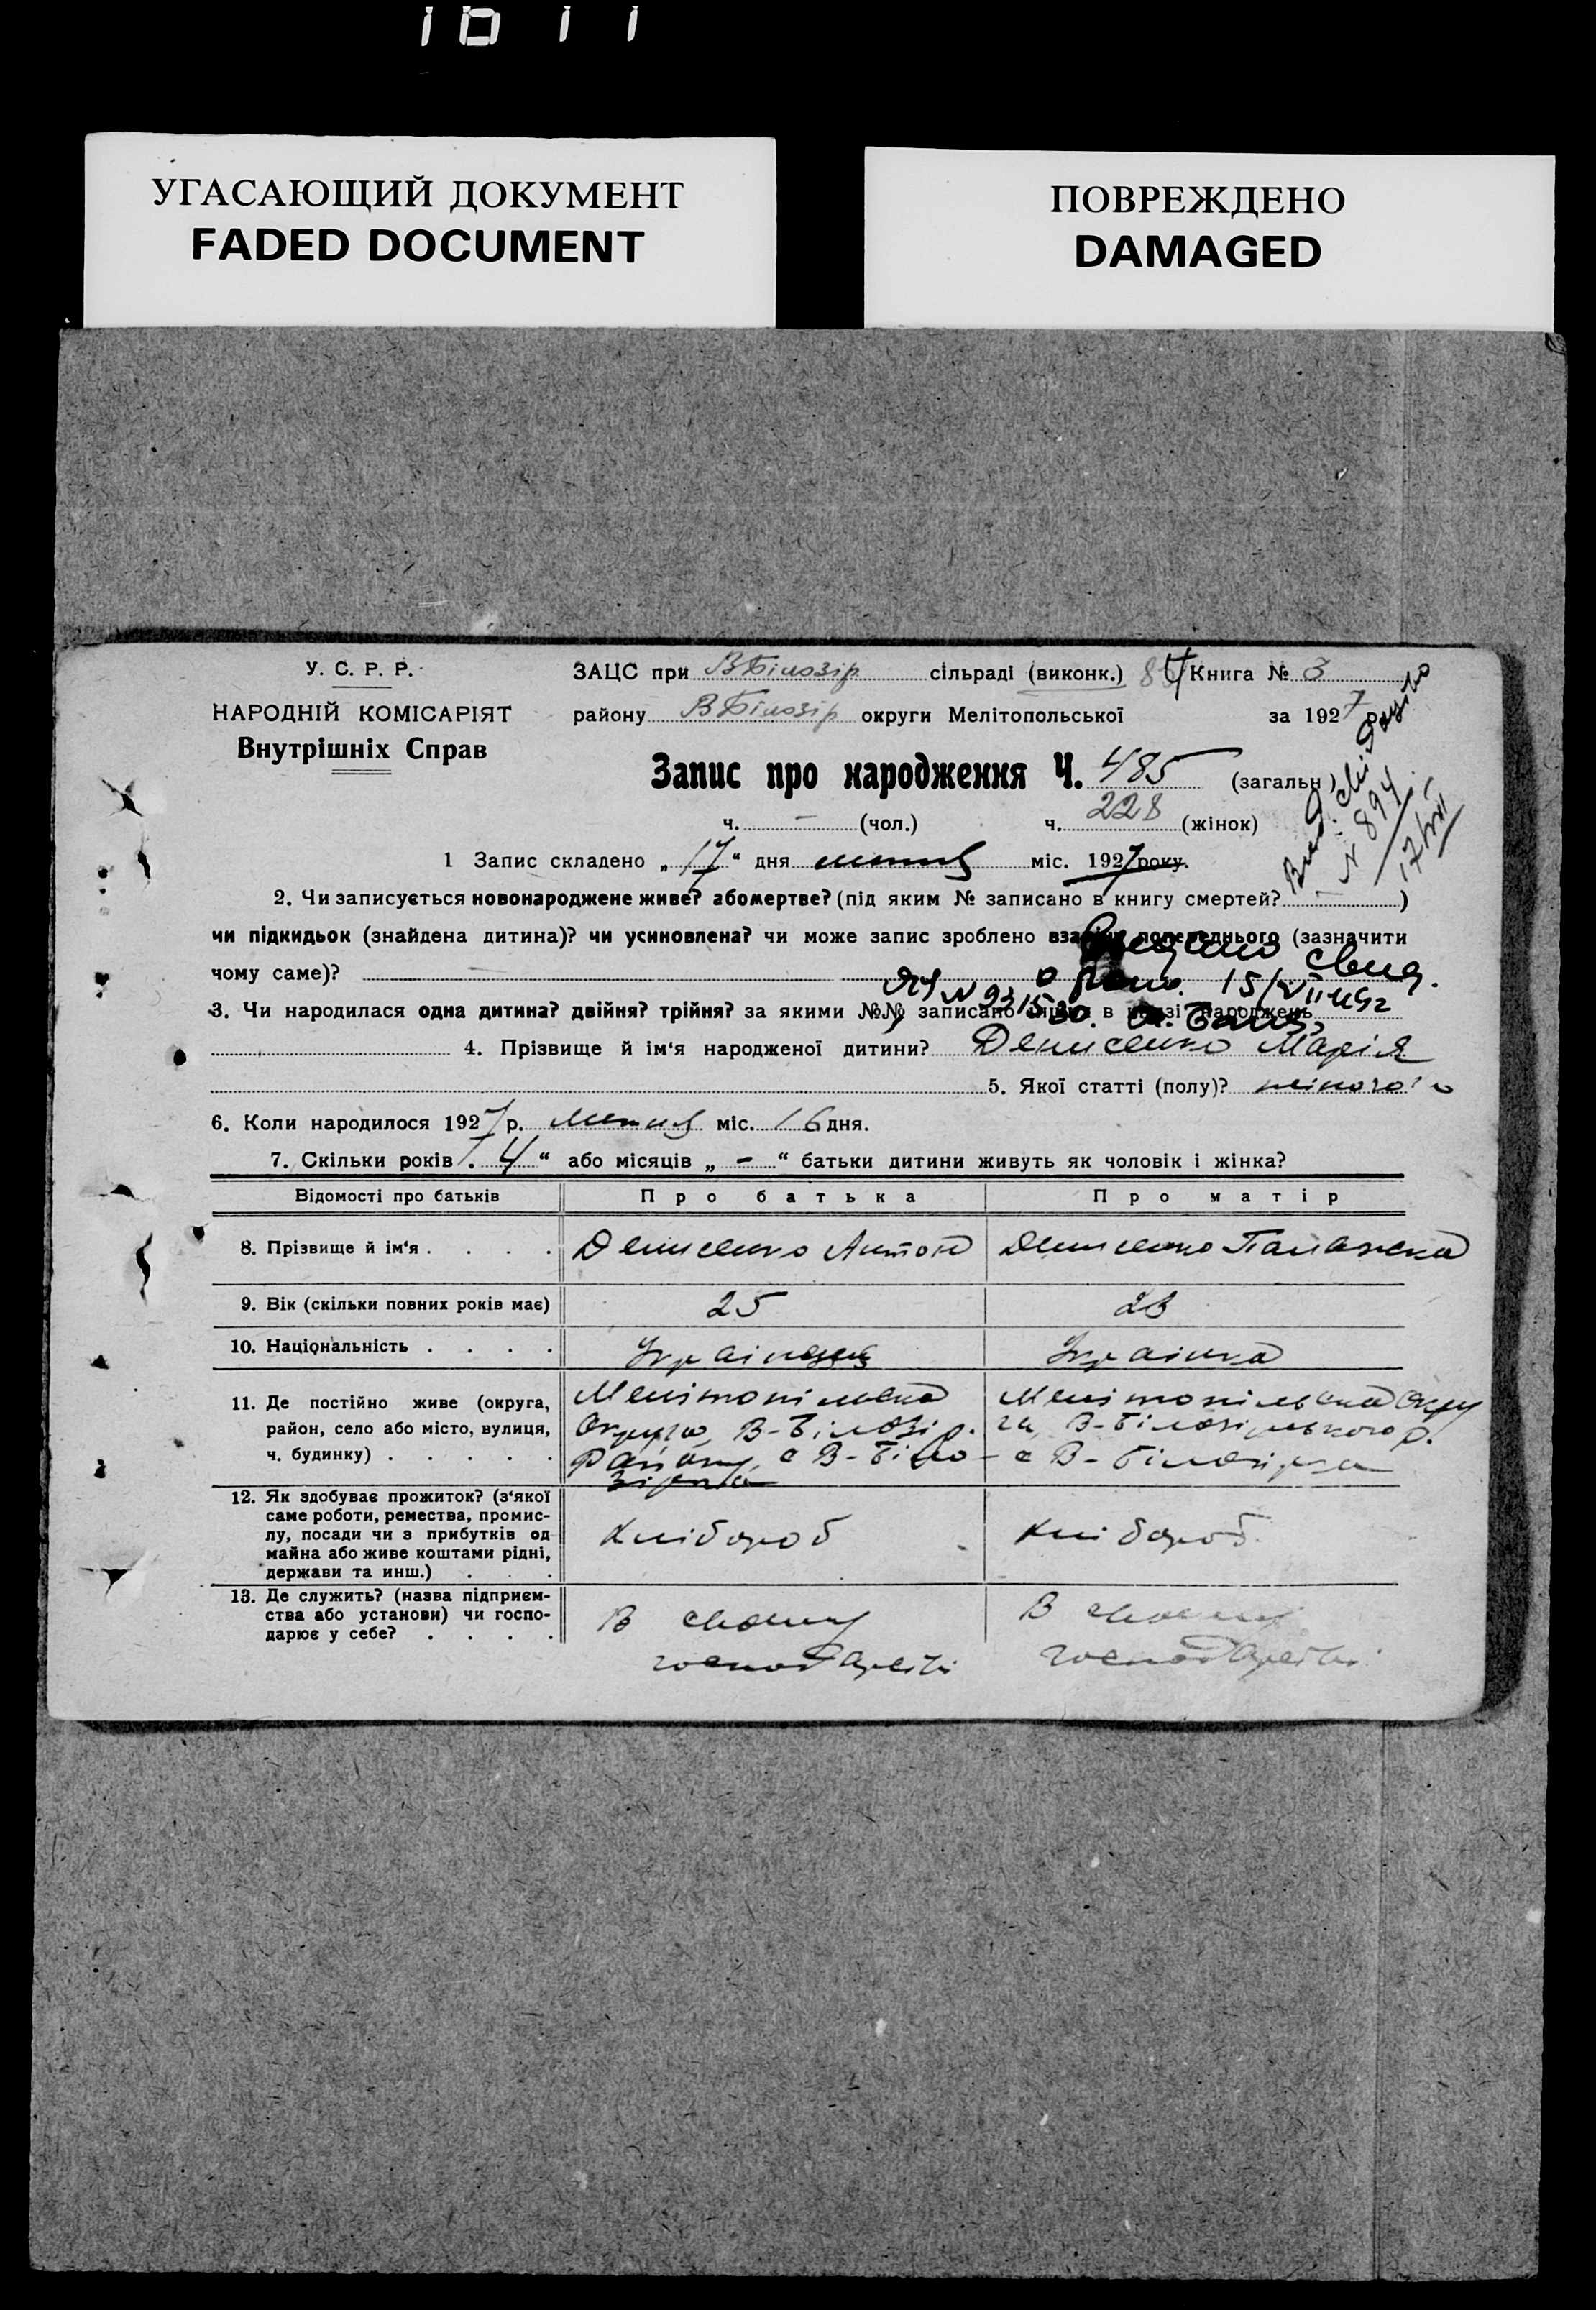 УГАСАЮЩИЙ ДОКУМЕНТ
FADED DOCUMENT
ПОВРЕЖДЕНО
DAMAGED
У. С. Р. Р.
НАРОДНІЙ КОМІСАРІЯТ
Внутрішніх Справ
ЗАЦС при В Білозір сільраді (виконк.) Книга № 3
району В Білозір округи Мелітопольської за 1927 р.
Запис про народження Ч. 485 (загальн.)
ч. – (чол.) ч. 228 (жінок)
№ 894
17/VII
1 Запис складено „17“ дня липня міс. 1927 року.
2. Чи записується новонароджене живе? або мертве? (під яким № записано в книгу смертей? )
чи підкидьок (знайдена дитина)? чи усиновлена? чи може запис зроблено взамін попереднього (зазначити
чому саме)?
свид.
15/VII 49г
3. Чи народилася одна дитина? двійня? трійня? за якими №№ записано в книзі народжень
4. Прізвище й ім‘я народженої дитини? Денисенко Марія
5. Якої статті (полу)? жіночого
6. Коли народилося 1927 р. липня міс. 16 дня.
7. Скільки років „4“ або місяців „ – “ батьки дитини живуть як чоловік і жінка?
Відомості про батьків Про батька Про матір
8. Прізвище й ім‘я . . . . Денисенко Антон Денисенко Палажка
9. Вік (скільки повних років має) 25 23
10. Національність . . . . Українець Українка
11. Де постійно живе (округа,
район, село або місто, вулиця,
ч. будинку) . . . . .
Мелітопільська
округа, В-Білозір.
району, с В-Біло-
зірка
Мелітопільська окру
га, В-Білозірського р.
с В-Білозірка
12. Як здобуває прожиток? (з‘якої
саме роботи, ремества, промис-
лу, посади чи з прибутків од
майна або живе коштами рідні,
держави та инш.) . . .
Хлібороб Хлібороб
13. Де служить? (назва підприєм-
ства або установи) чи госпо-
дарює у себе? . . . .
В своему
господарстві
В своему
господарстві